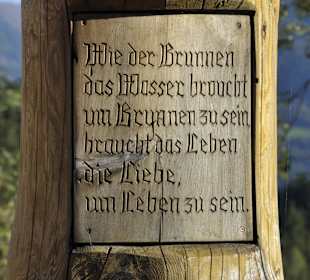 Wie der Brunnen
das Wasser braucht
um Brunnen zu sein,
braucht das Leben
die Liebe,
um Leben zu sein.